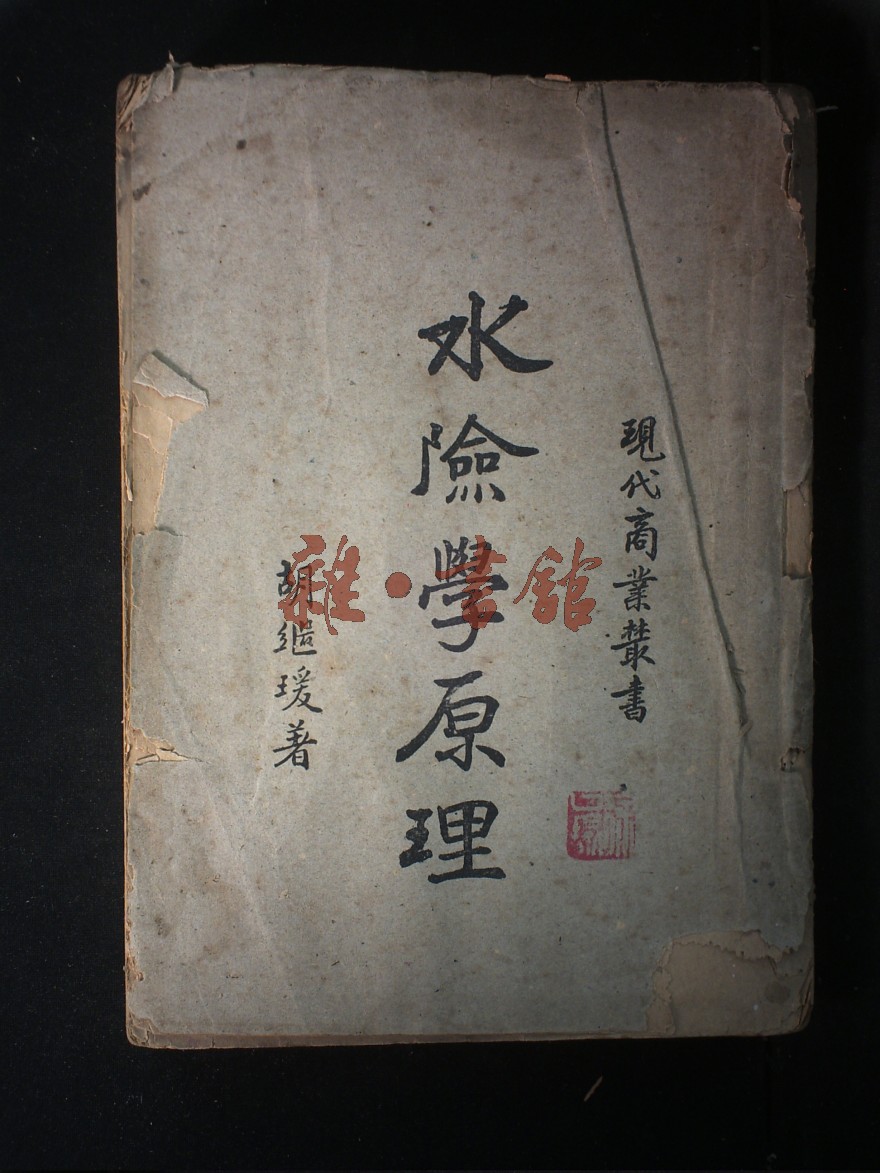 現代商業叢書
水險學原理
胡繼瑗著
雜·書館